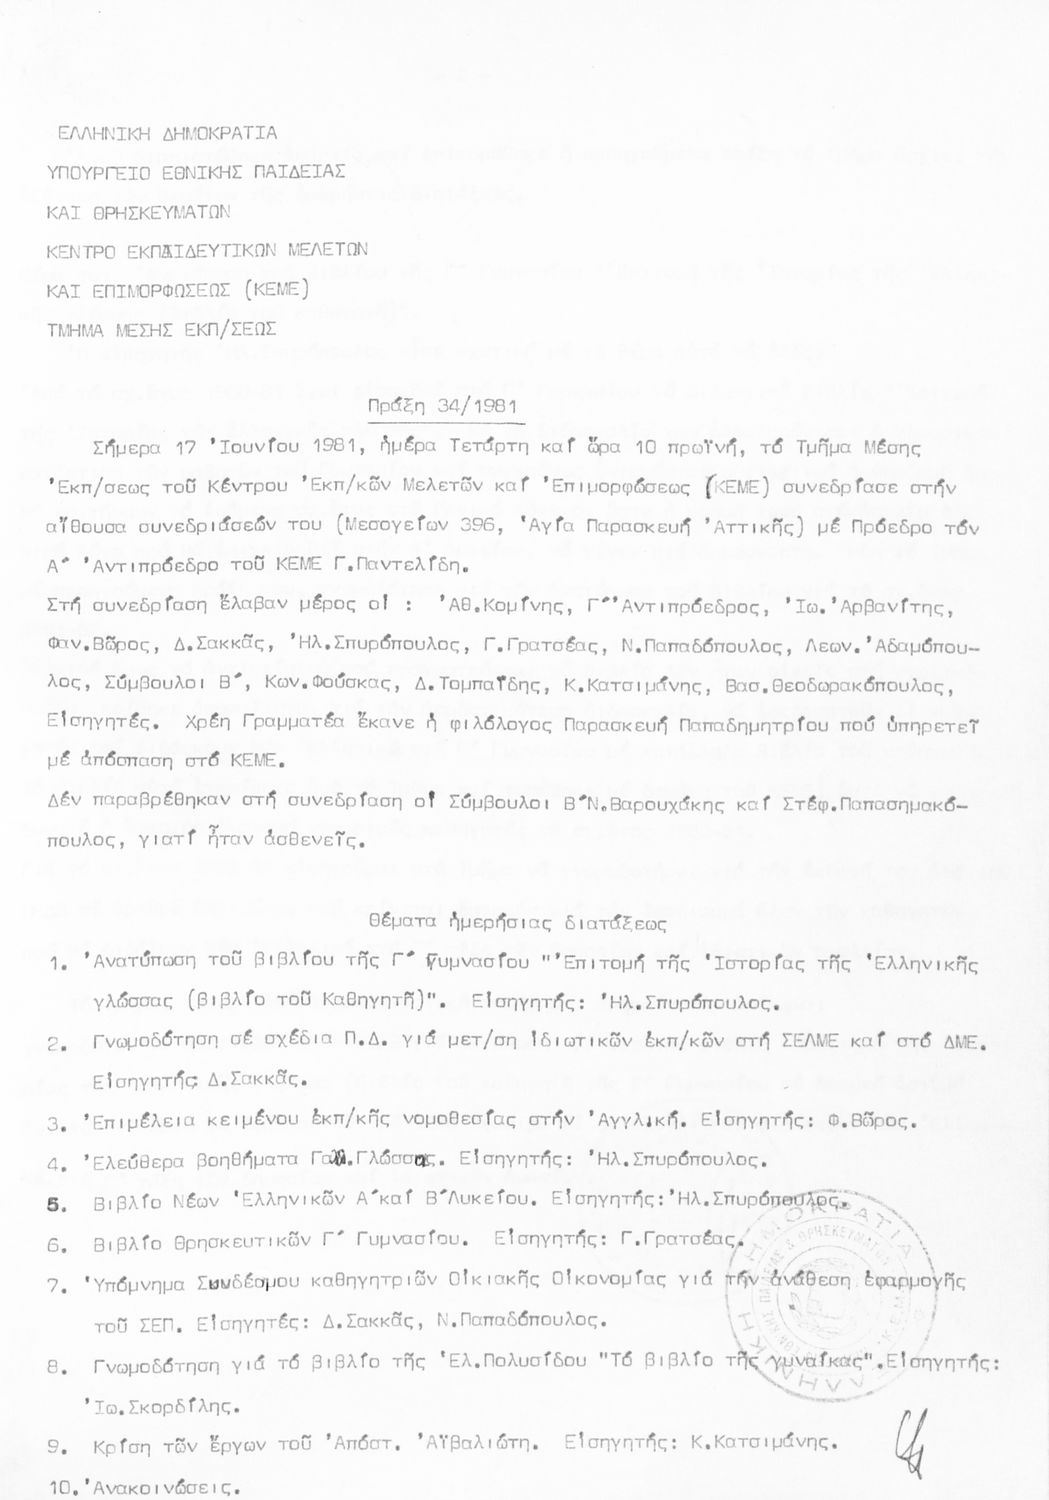 ΕΛΛΗΝΙΚΗ ΔΗΜΟΚΡΑΤΙΑ
ΥΠΟΥΡΓΕΙΟ ΕΘΝΙΚΗΣ ΠΑΙΔΕΙΑΣ
ΚΑΙ ΘΡΗΣΚΕΥΜΑΤΩΝ
ΚΕΝΤΡΟ ΕΚΠΑΙΔΕΥΤΙΚΩΝ ΜΕΛΕΤΩΝ
ΚΑΙ ΕΠΙΜΟΡΦΩΣΕΩΣ (ΚΕΜΕ)
ΤΜΗΜΑ ΜΕΣΗΣ ΕΚΠ/ΣΕΩΣ
Πράξη 34/1981
Σήμερα 17 Ἰουνίου 1981, ἡμέρα Τετάρτη καί ὥρα 10 πρωϊνή, τό Τμῆμα Μέσης
Ἐκπ/σεως τοῦ Κέντρου Ἐκπ/κῶν Μελετῶν καί Ἐπιμορφώσεως (ΚΕΜΕ) συνεδρίασε στήν
αἴθουσα συνεδριάσεών του (Μεσογείων 396, Ἁγία Παρασκευή Ἀττικῆς) μέ Πρόεδρο τόν
Α΄ Ἀντιπρόεδρο τοῦ ΚΕΜΕ Γ.Παντελίδη.
Στή συνεδρίαση ἔλαβαν μέρος οἱ : Ἀθ.Κομίνης, Γ΄ Ἀντιπρόεδρος, Ἰω.Ἀρβανίτης,
Φαν.Βῶρος, Δ.Σακκᾶς, Ἠλ.Σπυρόπουλος, Γ.Γρατσέας, Ν.Παπαδόπουλος, Λεων.Ἀδαμόπου-
λος, Σύμβουλοι Β΄, Κων.Φούσκας, Δ.Τομπαΐδης, Κ.Κατσιμάνης, Βασ.Θεοδωρακόπουλος,
Εἰσηγητές. Χρέη Γραμματέα ἔκανε ἡ φιλόλογος Παρασκευή Παπαδημητρίου πού ὑπηρετεῖ
μέ ἀπόσπαση στό ΚΕΜΕ.
Δέν παραβρέθηκαν στή συνεδρίαση οἱ Σύμβουλοι Β΄ Ν.Βαρουχάκης καί Στέφ.Παπασημακό-
πουλος, γιατί ἦταν ἀσθενεῖς.
Θέματα ἡμερήσιας διατάξεως
1. Ἀνατύπωση τοῦ βιβλίου τῆς Γ΄ Γυμνασίου "Ἐπιτομή τῆς Ἱστορίας τῆς Ἑλληνικῆς
γλώσσας (βιβλίο τοῦ Καθηγητῆ)". Εἰσηγητής: Ἠλ.Σπυρόπουλος.
2. Γνωμοδότηση σέ σχέδια Π.Δ. γιά μετ/ση ἰδιωτικῶν ἐκπ/κῶν στή ΣΕΛΜΕ καί στό ΔΜΕ.
Εἰσηγητής: Δ.Σακκᾶς.
3. Ἐπιμέλεια κειμένου ἐκπ/κῆς νομοθεσίας στήν Ἀγγλική. Εἰσηγητής: Φ.Βῶρος.
4. Ἐλεύθερα βοηθήματα Γαλ.Γλώσσας. Εἰσηγητής: Ἠλ.Σπυρόπουλος.
5. Βιβλίο Νέων Ἑλληνικῶν Α΄ καί Β΄ Λυκείου. Εἰσηγητής: Ἠλ.Σπυρόπουλος.
6. Βιβλίο Θρησκευτικῶν Γ΄ Γυμνασίου. Εἰσηγητής: Γ.Γρατσέας.
7. Ὑπόμνημα Συνδέσμου καθηγητριῶν Οἰκιακῆς Οἰκονομίας γιά τήν ἀνάθεση ἐφαρμογῆς
τοῦ ΣΕΠ. Εἰσηγητές: Δ.Σακκᾶς, Ν.Παπαδόπουλος.
8. Γνωμοδότηση γιά τό βιβλίο τῆς Ἑλ.Πολυσίδου "Τό βιβλίο τῆς γυναίκας". Εἰσηγητής:
Ἰω.Σκορδίλης.
9. Κρίση τῶν ἔργων τοῦ Ἀπόστ. Ἀϊβαλιώτη. Εἰσηγητής: Κ.Κατσιμάνης.
10. Ἀνακοινώσεις.
ΕΛΛΗΝΙΚΗ ΔΗΜΟΚΡΑΤΙΑ